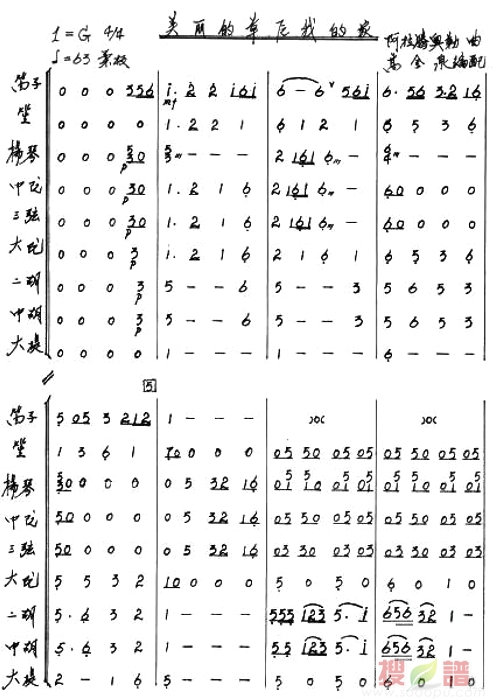 1=G 4/4 美丽的草原我的家 阿拉腾奥勒 曲
♩=63 柔板 编配
笛子 0 0 0 356 | i. 2 2 i6i | 6 - 6 ∨ 56i | 6. 56 32 16
mf
笙 0 0 0 0 | 1. 2 2 1 | 6 1 2 1 | 6 5 3 6
扬琴 0 0 0 30 | 3 - - - | 2 161 6 - | 6 - - -
p
中阮 0 0 0 30 | 1. 2 1 6 | 2 161 6 - | 60 0 0 0
p
三弦 0 0 0 30 | 1. 2 1 6 | 2 161 6 - | 60 0 0 0
p
大阮 0 0 0 3 | 1. 2 1 6 | 2 1 6 1 | 6 5 3 6
p
二胡 0 0 0 3 | 5 - - 6 | 5 - - 3 | 5 6 5 3
p
中胡 0 0 0 3 | 5 - - 6 | 5 - - 3 | 5 6 5 3
p
大提 0 0 0 0 | 1 - - - | 1 - - - | 6 - - -
5
笛子 5 05 3 212 | 1 - - - | |
笙 1 3 6 1 | 10 0 0 0 | 05 50 05 05 | 05 50 05 05
扬琴 30 0 0 0 | 0 5 32 16 | 05 10 05 05 | 05 10 05 05
中阮 50 0 0 0 | 0 5 32 16 | 05 50 05 05 | 05 50 05 05
三弦 50 0 0 0 | 0 5 32 16 | 03 30 03 05 | 03 30 03 05
大阮 5 5 3 2 | 10 0 0 0 | 5 0 5 0 | 6 0 1 0
二胡 5. 6 3 2 | 1 - - - | 555 123 5. i | 656 32 1 -
中胡 5. 6 3 2 | 1 - - - | 555 123 5. i | 656 32 1 -
大提 2 - 1 6 | 5 - - - | 5 0 5 0 | 6 0 1 0
搜谱